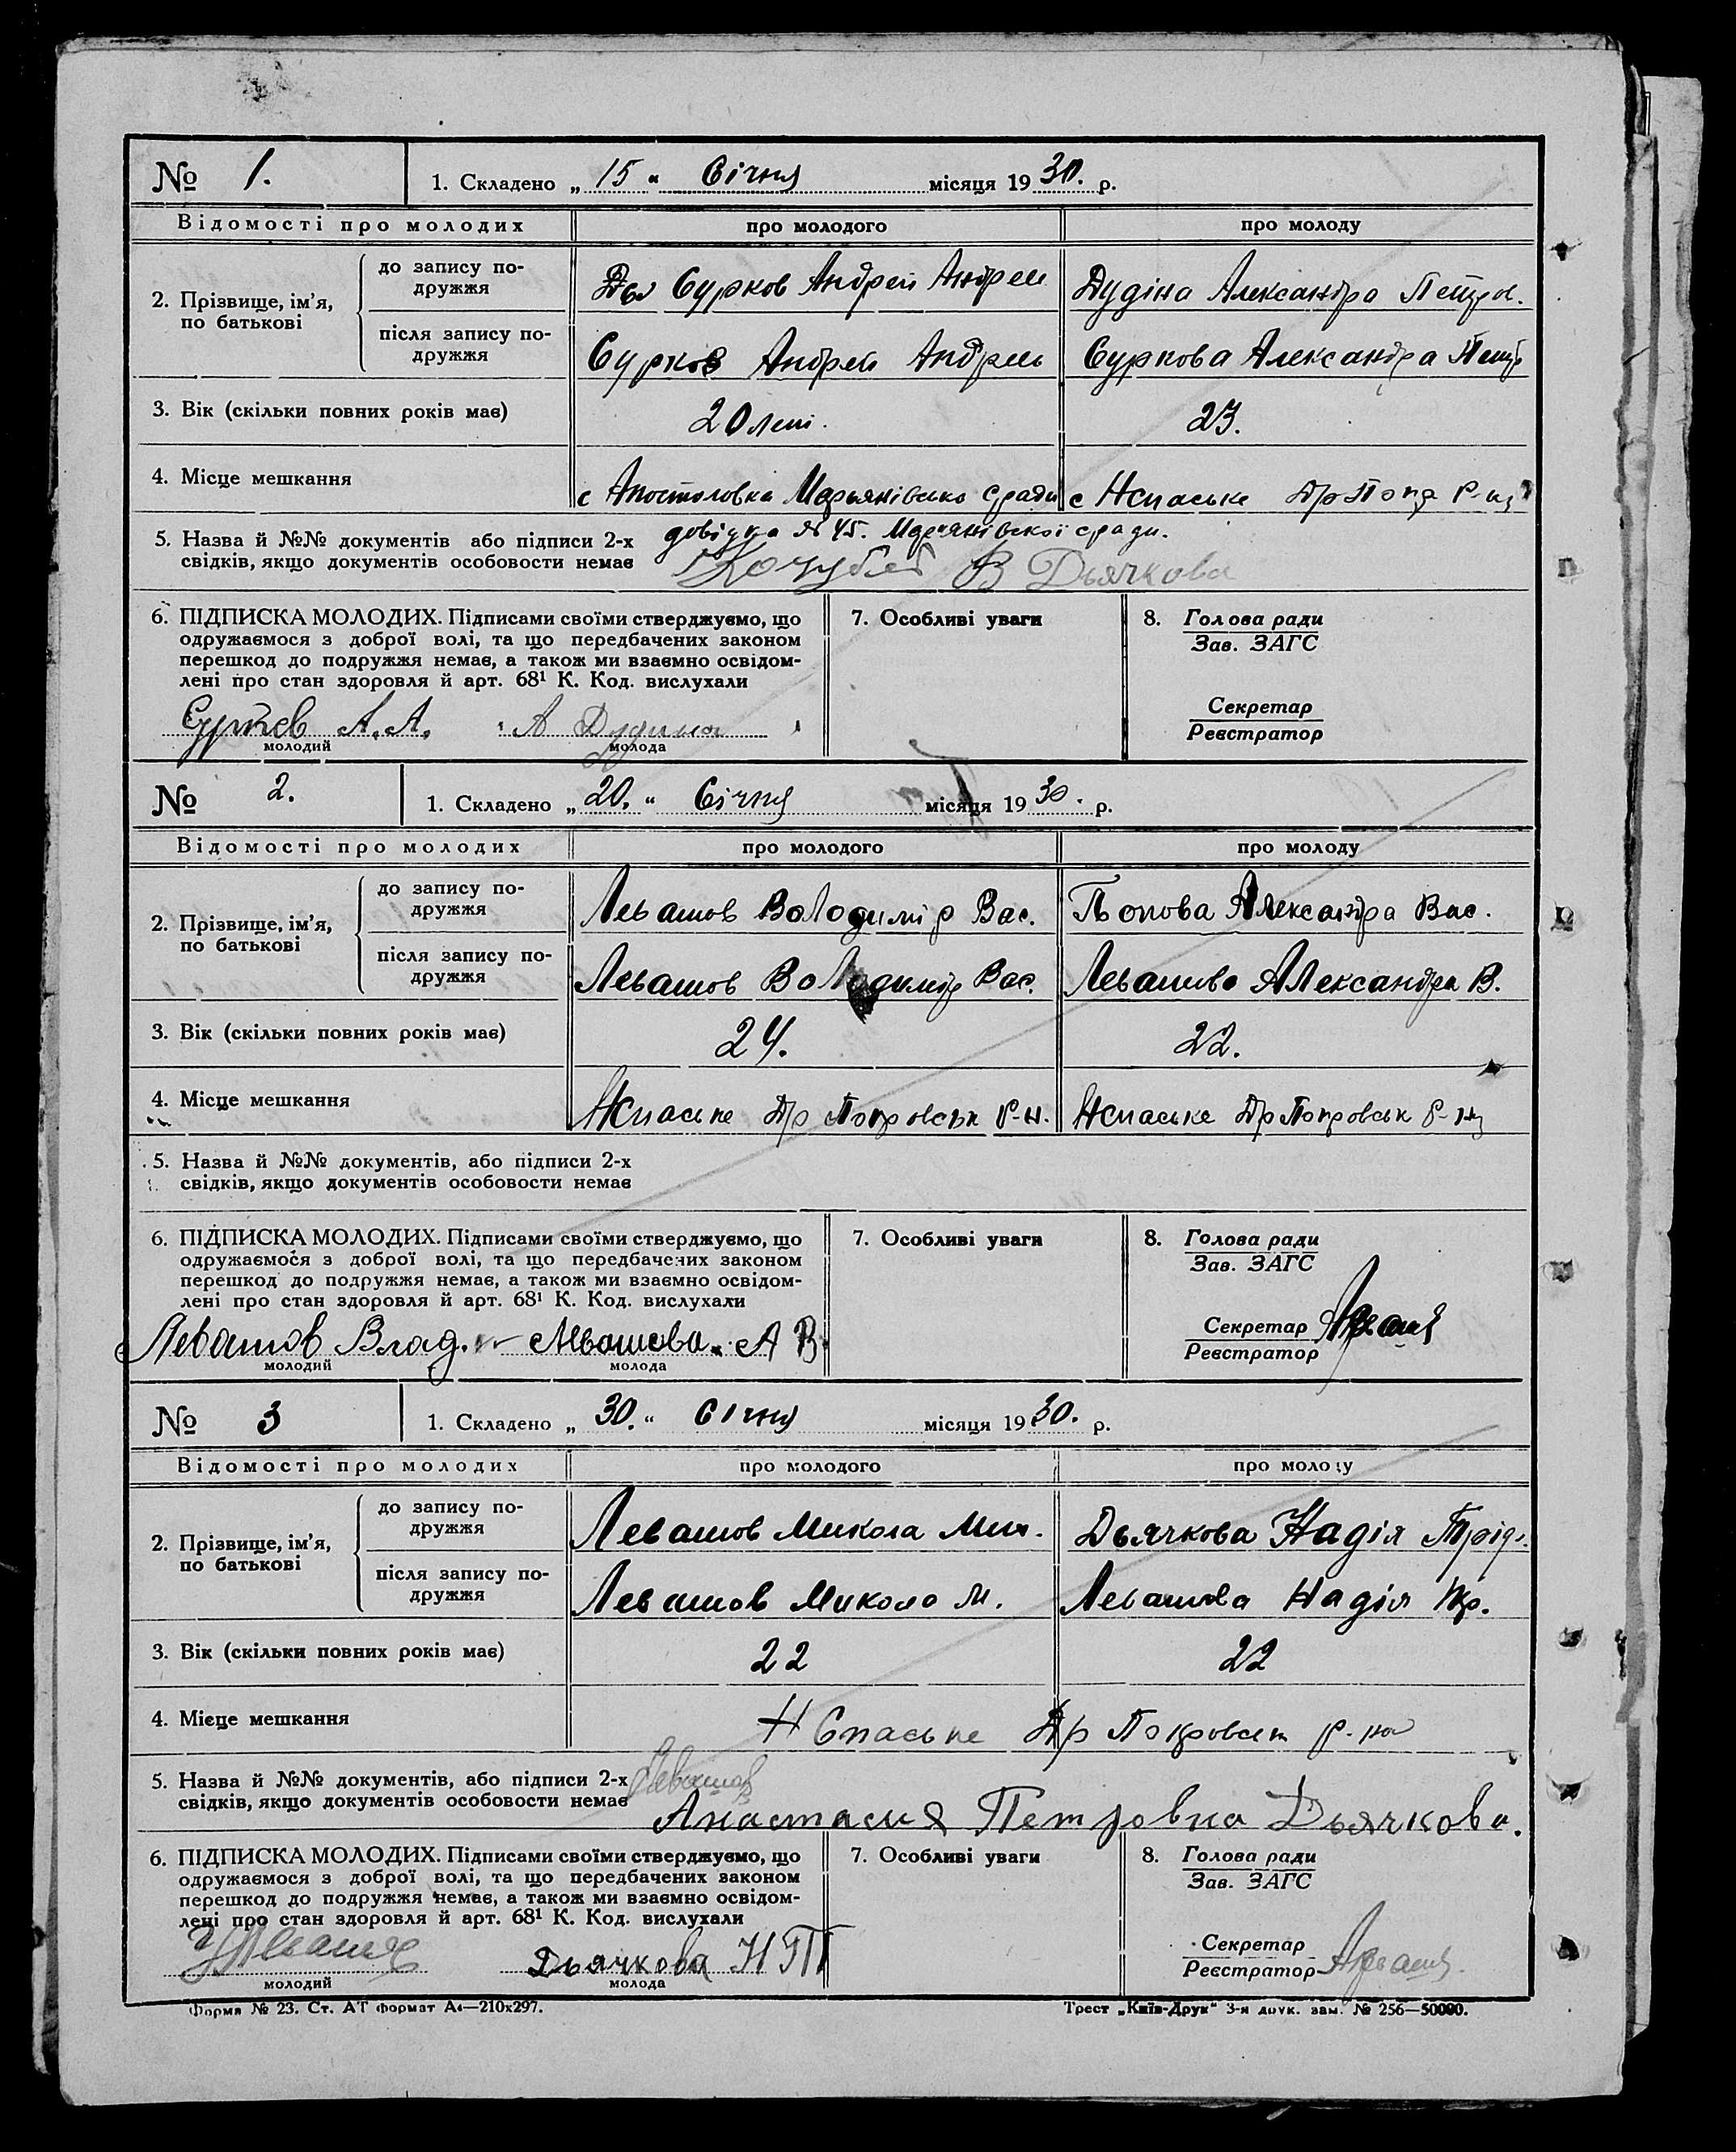 № 1. 1. Складено „ 15 “ Січня місяця 19 30. р.
Відомості про молодих про молодого про молоду
2. Прізвище, ім'я, по батькові
до запису подружжя Сурков Андрей Андрее Дудіна Александра Петров.
після запису подружжя Сурков Андрей Андреев Суркова Александра Петр
3. Вік (скільки повних років має) 20 лет. 23.
4. Місце мешкання с Апостоловка Марьянівсько с Нспаське Др
5. Назва й №№ документів або підписи 2-х довідка № 45. Марянівської сради.
свідків, якщо документів особовости немає Кочубей В Дьячкова
6. ПІДПИСКА МОЛОДИХ. Підписами своїми стверджуємо, що
одружаємося з доброї волі, та що передбачених законом
перешкод до подружжя немає, а також ми взаємно освідом-
лені про стан здоровля й арт. 68¹ К. Код. вислухали
А.А. А Дудина
молодий молода
7. Особливі уваги
8. Голова ради
Зав. ЗАГС
Секретар
Реєстратор
№ 2. 1. Складено „ 20. “ Січня місяця 19 30. р.
Відомості про молодих про молодого про молоду
2. Прізвище, ім'я, по батькові
до запису подружжя Левашов Володимір Вас. Попова Александра Вас.
після запису подружжя Левашов Володимір Вас. Левашова Александра В.
3. Вік (скільки повних років має) 24. 22.
4. Місце мешкання Нспаське Др Покровськ Р-н. Нспаське Др Покровськ Р-н
5. Назва й №№ документів, або підписи 2-х
свідків, якщо документів особовости немає
6. ПІДПИСКА МОЛОДИХ. Підписами своїми стверджуємо, що
одружаємося з доброї волі, та що передбачених законом
перешкод до подружжя немає, а також ми взаємно освідом-
лені про стан здоровля й арт. 68¹ К. Код. вислухали
Левашов Влад. Левашова. А В.
молодий молода
7. Особливі уваги
8. Голова ради
Зав. ЗАГС
Секретар
Реєстратор
№ 3 1. Складено „ 30. “ Січня місяця 19 30. р.
Відомості про молодих про молодого про молоду
2. Прізвище, ім'я, по батькові
до запису подружжя Левашов Микола Мих. Дьячкова Надія
після запису подружжя Левашов Микола М. Левашова Надія
3. Вік (скільки повних років має) 22 22
4. Місце мешкання Н Спаське Др Покровськ р-на
5. Назва й №№ документів, або підписи 2-х Левашов
свідків, якщо документів особовости немає Анастасия Петровна Дьячкова.
6. ПІДПИСКА МОЛОДИХ. Підписами своїми стверджуємо, що
одружаємося з доброї волі, та що передбачених законом
перешкод до подружжя немає, а також ми взаємно освідом-
лені про стан здоровля й арт. 68¹ К. Код. вислухали
Дьячкова Н Т
молодий молода
7. Особливі уваги
8. Голова ради
Зав. ЗАГС
Секретар
Реєстратор
Форма № 23. Ст. АТ формат А4—210х297.
Трест „Київ-Друк“ 3-я друк. зам. № 256—50000.